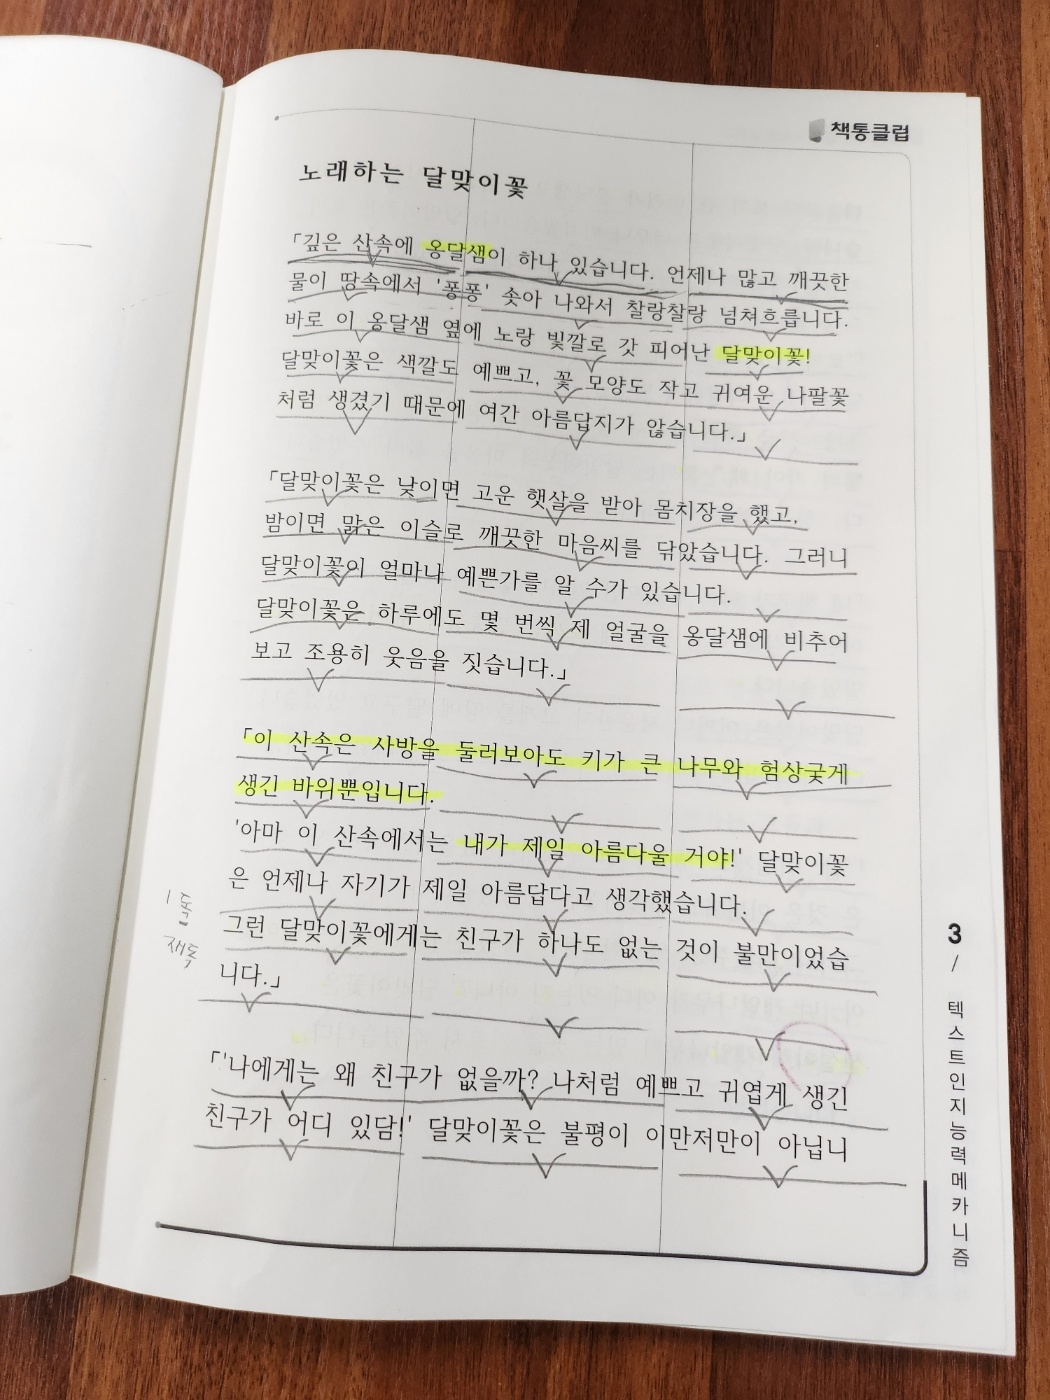 책통클럽
노래하는 달맞이꽃
「깊은 산속에 옹달샘이 하나 있습니다. 언제나 많고 깨끗한
물이 땅속에서 '퐁퐁' 솟아 나와서 찰랑찰랑 넘쳐흐릅니다.
바로 이 옹달샘 옆에 노랑 빛깔로 갓 피어난 달맞이꽃!
달맞이꽃은 색깔도 예쁘고, 꽃 모양도 작고 귀여운 나팔꽃
처럼 생겼기 때문에 여간 아름답지가 않습니다.」
「달맞이꽃은 낮이면 고운 햇살을 받아 몸치장을 했고,
밤이면 맑은 이슬로 깨끗한 마음씨를 닦았습니다. 그러니
달맞이꽃이 얼마나 예쁜가를 알 수가 있습니다.
달맞이꽃은 하루에도 몇 번씩 제 얼굴을 옹달샘에 비추어
보고 조용히 웃음을 짓습니다.」
「이 산속은 사방을 둘러보아도 키가 큰 나무와 험상궂게
생긴 바위뿐입니다.
'아마 이 산속에서는 내가 제일 아름다울 거야!' 달맞이꽃
은 언제나 자기가 제일 아름답다고 생각했습니다.
그런 달맞이꽃에게는 친구가 하나도 없는 것이 불만이었습
니다.」
「'나에게는 왜 친구가 없을까? 나처럼 예쁘고 귀엽게 생긴
친구가 어디 있담!' 달맞이꽃은 불평이 이만저만이 아닙니
3 / 텍스트인지능력메카니즘